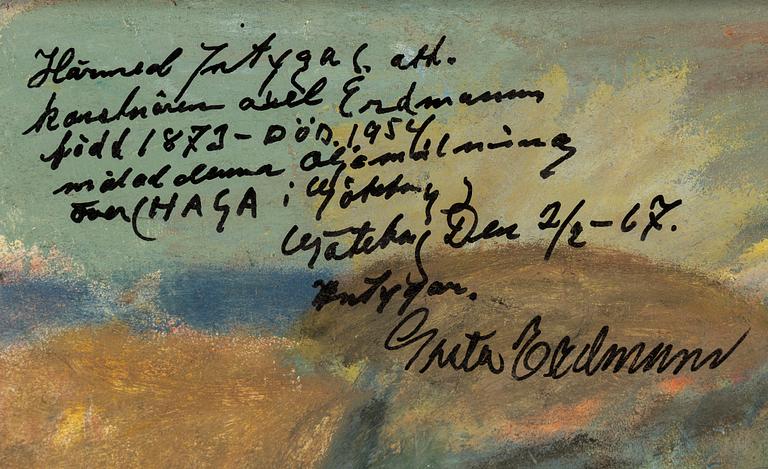 Härmed Intygas. att.
konstnären axel Erdmann
född 1873 - DÖD. 1954
målad denna oljemålning
över (HAGA i Göteborg)
Göteborg Den 2/2-67.
Intygar.
Greta Erdmann